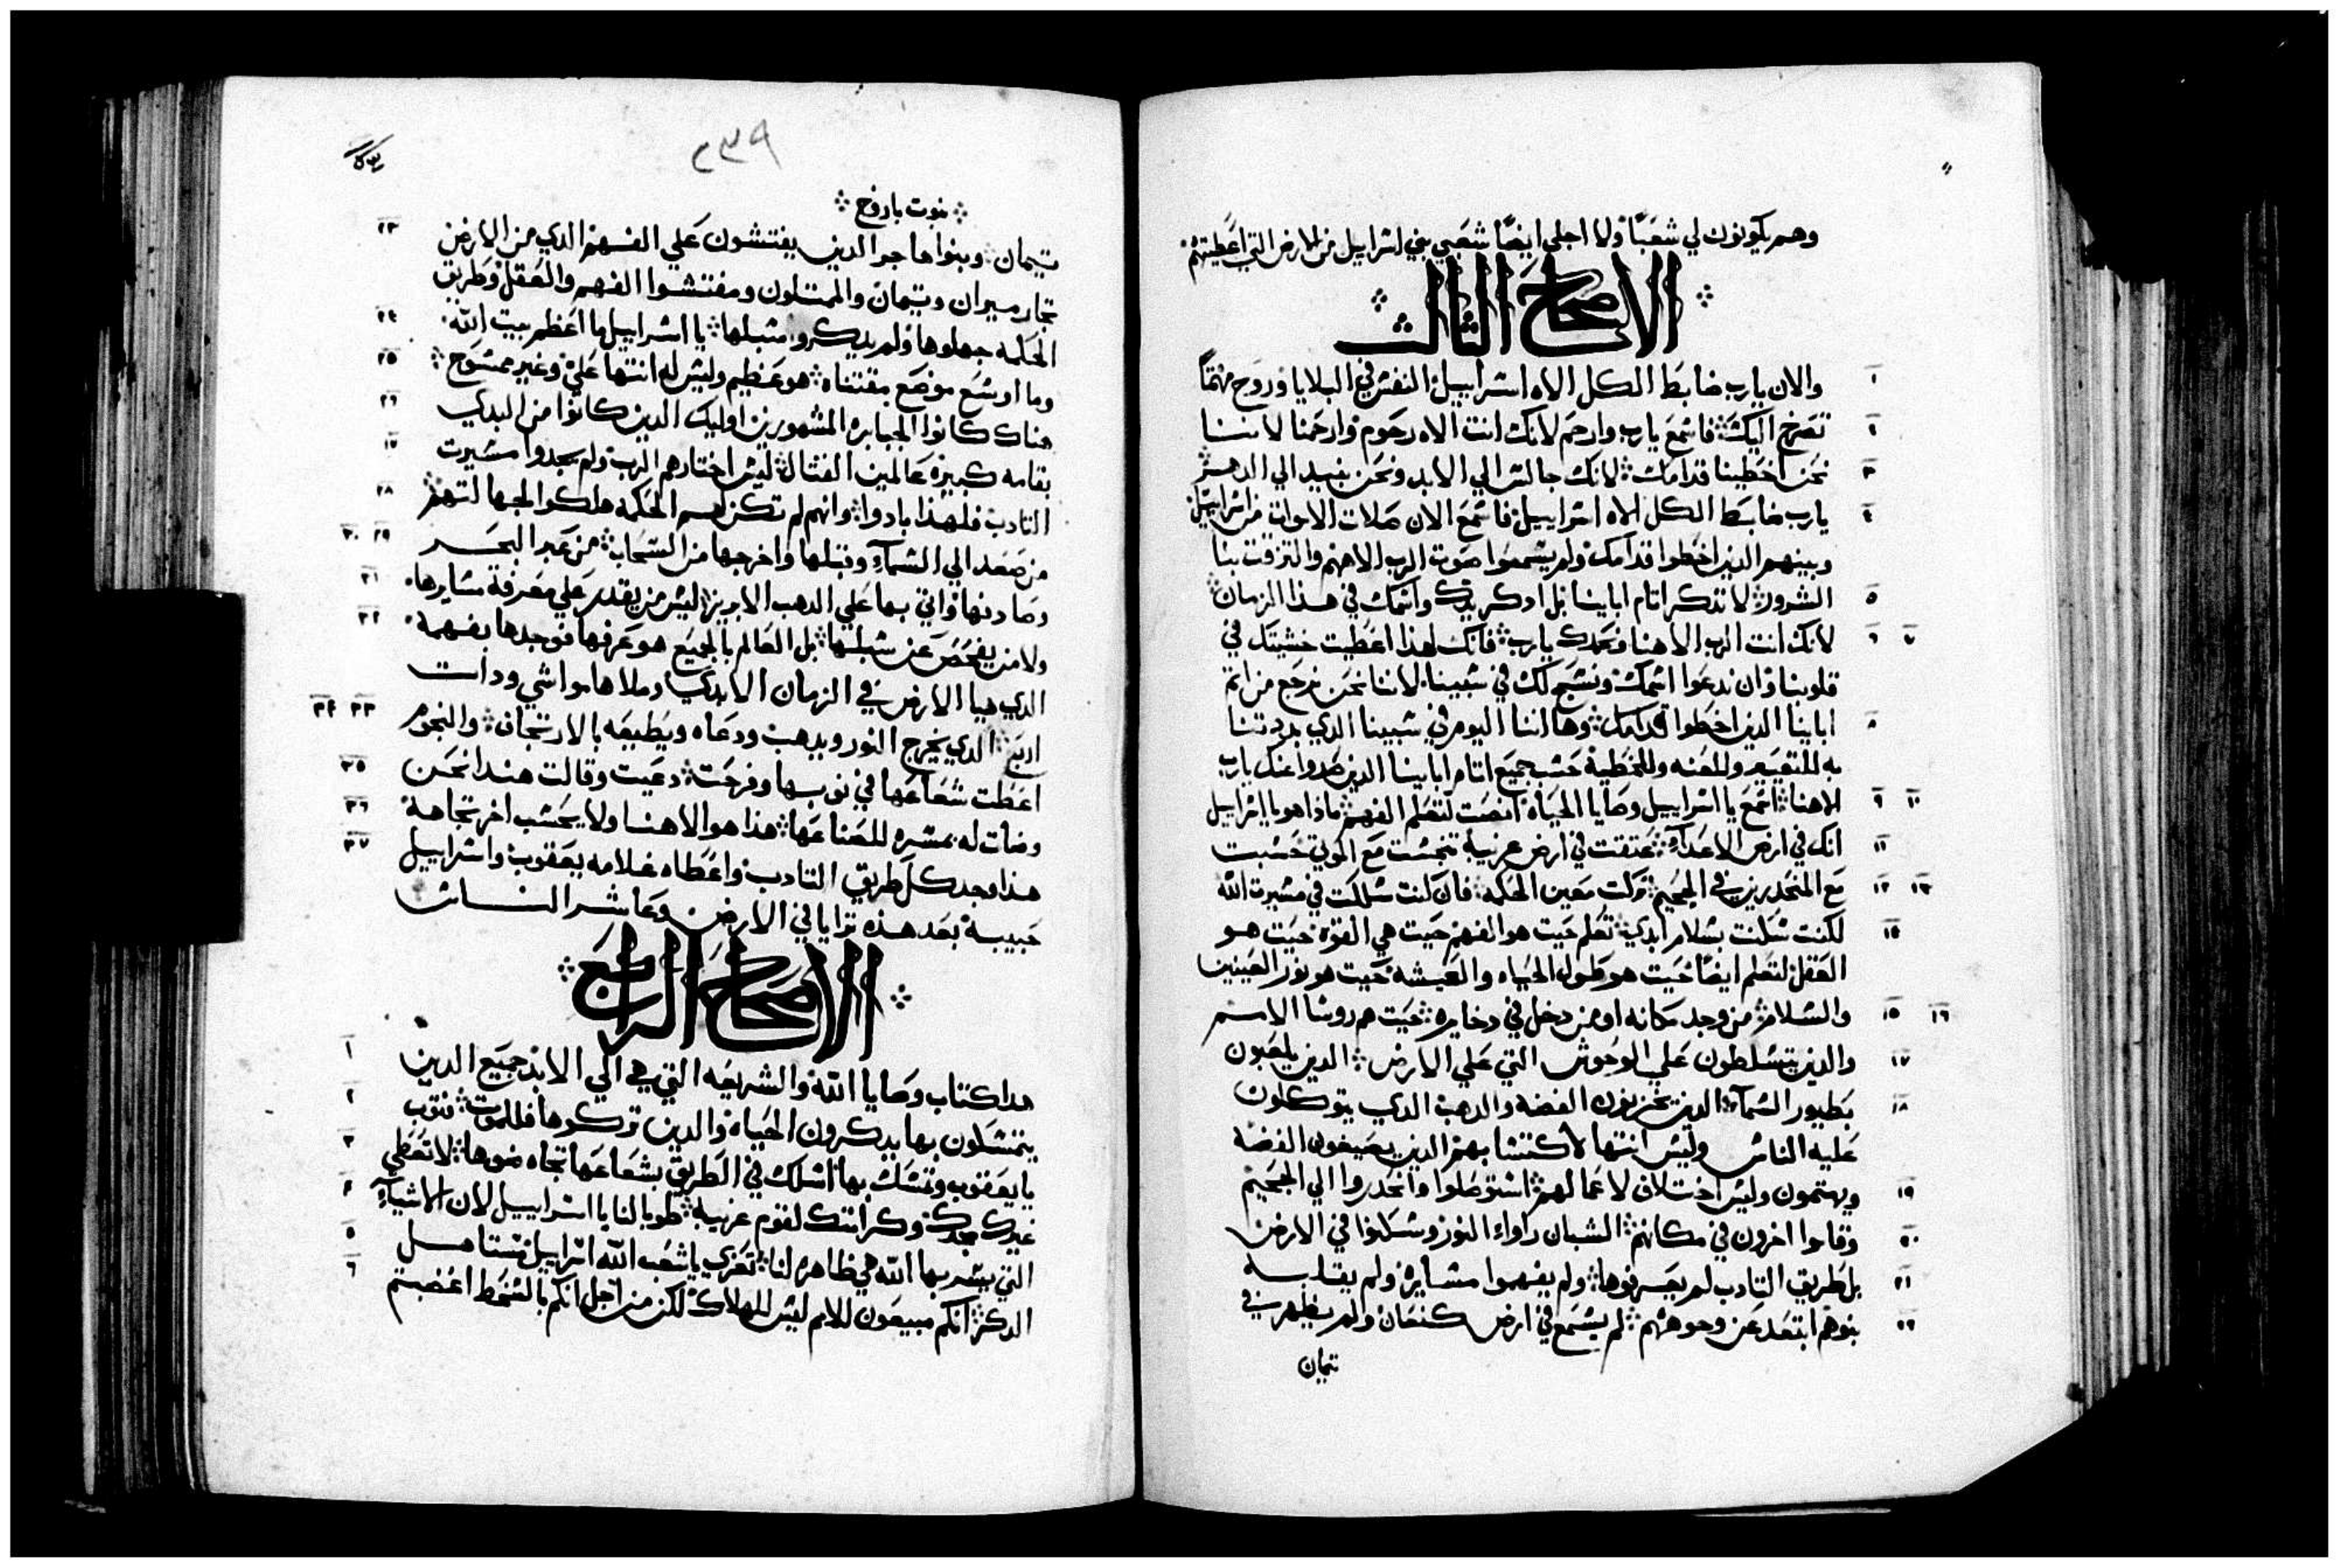 وهم يكونون لي شعبًا ولا اجلي ايضًا شعبي بني اسراييل من الارض التي اعطيتهم
الاصحاح الثالث
١ والان يارب ضابط الكل الاه اسراييل النفس في البلايا وروح مهتمًا
٢ تصرخ اليك فاسمع يارب وارحم لانك انت الاه رحوم وارحمنا لاننا
٣ نحن اخطينا قدامك لانك جالس الي الابد ونحن نبيد الي الدهر
٤ يارب ضابط الكل الاه اسراييل فاسمع الان صلات الاموات من اسراييل
وبينهم الذين اخطوا قدامك ولم يسمعوا صوت الرب الاههم والتزقت بنا
٥ الشرور لا تذكر اتام اباينا بل ادكر يدك واسمك في هذا الزمان
٦ ٧ لانك انت الرب الاهنا ونحمدك يارب فانك لهذا اعطيت خشيتك في
قلوبنا وان ندعوا اسمك ونسبح لك في سبينا لاننا نحن نرجع من اتم
٨ اباينا الذين اخطوا قدامك وها اننا اليوم في سبينا الذي بددتنا
به للتعيير وللعنه وللخطية حسب جميع اتام اباينا الذين بعدوا عنك يارب
٩ ١٠ الاهنا اسمع يا اسراييل وصايا الحياة انصت لتعلم الفهم ماذا هو يا اسراييل
١١ انك في ارض الاعداء عتقت في ارض غريبة تنجست مع الموتي حسبت
١٢ ١٣ مع المنحدرين في الجحيم تركت معين الحكمه فان كنت سلكت في مسيرة الله
١٤ لكنت سكنت بسلام ابدي تعلم حيت هو الفهم حيت هي القوة حيت هو
العقل لتعلم ايضًا حيت هو طول الحياه والعيشه حيت هو نور العينين
١٥ ١٦ والسلام من وجد مكانه او من دخل في دخايره حيت هم روسا الامم
١٧ والذين يتسلطون علي الوحوش التي علي الارض الذين يلعبون
١٨ بطيور السماء الذين يخزنون الفضه والدهب الذي يتوكلون
عليه الناس وليس انتها لاكتسابهم الذين يصيغون الفضه
١٩ ويهتمون وليس اختلاف لاعمالهم استوصلوا وانحدروا الي الجحيم
٢٠ وقاموا اخرون في مكانهم الشبان راواء النور وسكنوا في الارض
٢١ بل طريق التادب لم يعرفوها ولم يفهموا مسايره ولم يقلبه
٢٢ بنوهم ابتعد عن وجوههم لم يسمع في ارض كنعان ولم يظهر في
تيمان
٢٣٩
نبوت باروخ
٢٣ تيمان وبنوا هاجر الذين يفتشون علي الفهم الذي من الارض
تجار ميران وتيمان والممتلون ومفتشوا الفهم والعقل وطريق
٢٤ الحكمه جهلوها ولم يدكروا سبلها يا اسراييل ما اعظم بيت الله
٢٥ وما اوسع موضع مقتناه هو عظيم وليس له انتها علي وغير ممسوح
٢٦ هناك كانوا الجبابره المشهورين اوليك الذين كانوا من البدي
٢٧ بقامه كبيرة عالمين القتال ليس اختارهم الرب ولم يجدوا مسيرت
٢٨ التادب فلهذا بادوا وانهم لم تكن لهم الحكمه هلكوا لجهالتهم
٢٩ ٣٠ من صعد الي السماء وقبلها واخرجها من السحاب من عبر البحر
٣١ وصادفها واتي بها علي الدهب الابريز ليس من يقدر علي معرفة مسايرها
٣٢ ولا من يفحص عن سبلها بل العالم بالجميع هو عرفها فوجدها بفهمه
الذي هيا الارض في الزمان الابدي وملاها مواشي ودات
٣٣ ٣٤ اربع الذي يخرج النور ويدهب ودعاه ويطيعه بالارتجاف والنجوم
٣٥ اعطت شعاعها في نوبتها وفرحت دعيت وقالت هندا نحن
٣٦ وضات له بمسره للصناعها هذا هو الاهنا ولا يحسب اخر تجاهه
٣٧ هذا وجد كل طريق التادب واعطاه غلامه يعقوب واسراييل
حبيبه بعد هذه تراايا في الارض وعاشر الناس
الاصحاح الرابع
١ هدا كتاب وصايا الله والشريعه التي هي الي الابد جميع الدين
٢ يتمسكون بها يدكرون الحياه والدين تركوها فللموت فتوب
٣ يا يعقوب وتمسك بها اسلك في الطريق بشعاعها تجاه ضوها لا تعطي
٤ غيرك مجدك وكرامتك لقوم غريبة طوبا لنا يا اسراييل لان الاشياء
٥ التي يسر بها الله هي ظاهره لنا تعزي يا شعب الله اسراييل تستاهل
٦ الدكر انكم مبيعون للامم ليس للهلاك لكن من اجل انكم بالسخط اغضبتم